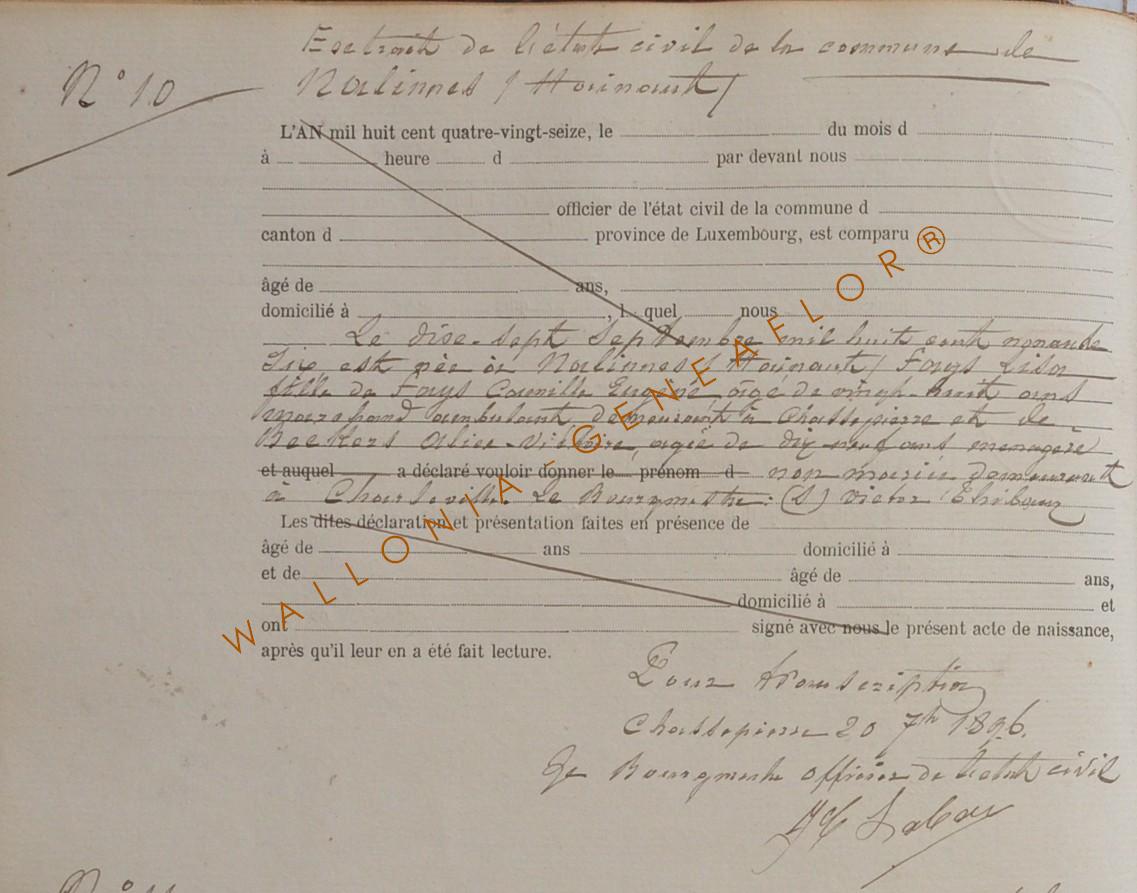 Extrait de l'état civil de la commune de
N° 10 Nalinnes (Hainaut)
L'AN mil huit cent quatre-vingt-seize, le du mois d
à heure d par devant nous
officier de l'état civil de la commune d
canton d province de Luxembourg, est comparu
âgé de ans,
domicilié à , l quel nous
Le dise-sept Septembre mil huit cent nonante
Six est née à Nalinnes (Hainaut) Fays Lisa
fille de Fays Camille Eugène âgé de vingt-huit ans
marchand ambulant demeurant à Chassepierre et de
Beckers Alice-Victoire, agée de dix-neuf ans menagere
et auquel a déclaré vouloir donner le prénom d non mariée demeurant
à Charleville. Le Bourgmestre: (S) Victor
Les dites déclaration et présentation faites en présence de
âgé de ans domicilié à
et de âgé de ans,
domicilié à et
ont signé avec nous le présent acte de naissance,
après qu'il leur en a été fait lecture.
Pour transcription
Chassepierre 20 7bre 1896.
Le Bourgmestre officier de l'état civil
WALLONIA-GENEAFLOR®